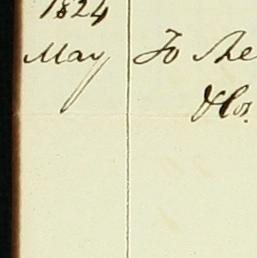 1824
May To the
& Co.